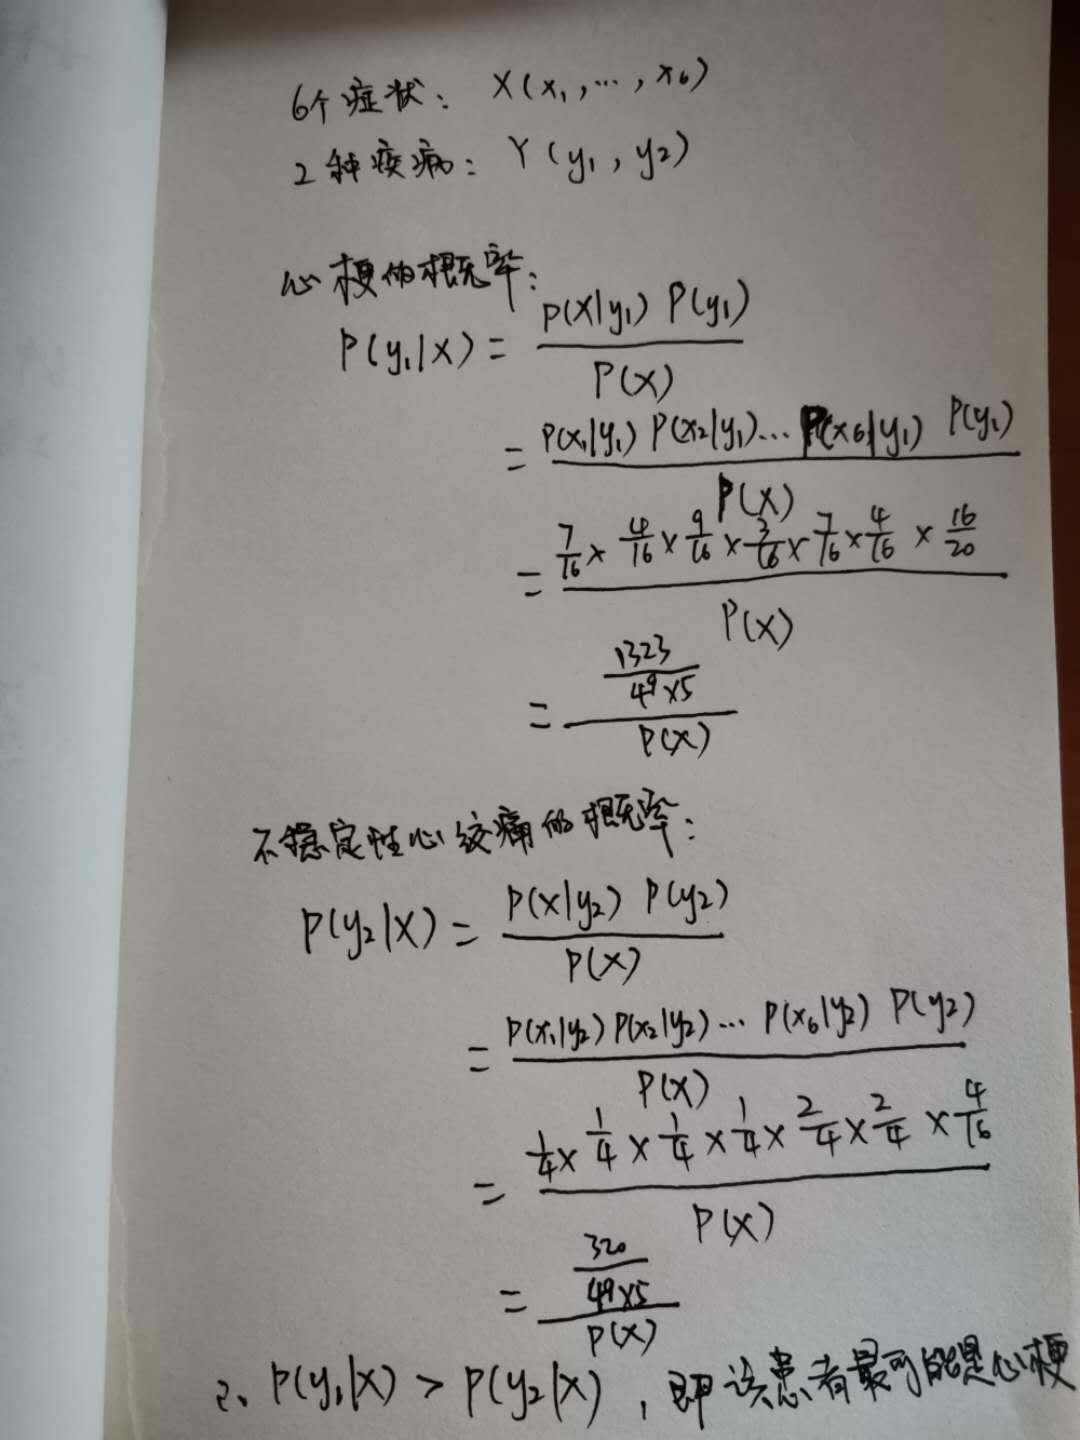 6个症状： X(x₁,…,x₆)
2种疾病： Y(y₁,y₂)
心梗的概率：
P(y₁|X) = P(X|y₁) P(y₁) / P(X)
= P(x₁|y₁) P(x₂|y₁)… P(x₆|y₁) P(y₁) / P(X)
= 7/16 × 4/16 × 9/16 × 3/16 × 7/16 × 4/16 × 16/20 / P(X)
= 1323/(4⁹×5) / P(X)
不稳定性心绞痛的概率：
P(y₂|X) = P(X|y₂) P(y₂) / P(X)
= P(x₁|y₂) P(x₂|y₂)… P(x₆|y₂) P(y₂) / P(X)
= 1/4 × 1/4 × 1/4 × 1/4 × 2/4 × 2/4 × 4/16 / P(X)
= 320/(4⁹×5) / P(X)
∴ P(y₁|X) > P(y₂|X)，即该患者最可能是心梗